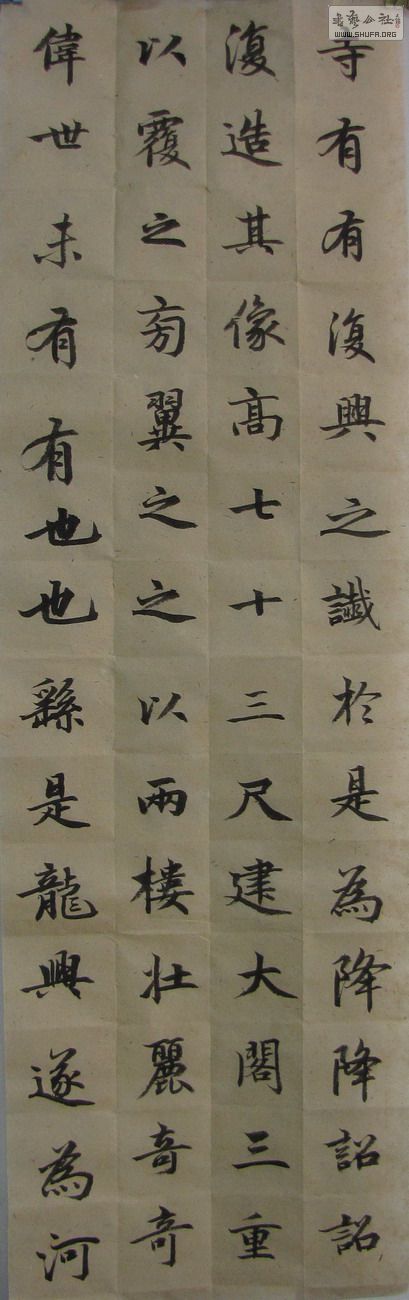 寺有有復興之讖於是為降降詔詔
復造其像高七十三尺建大閣三重
以覆之旁翼之之以兩樓壯麗奇奇
偉世未有有也也繇是龍興遂為河
書藝公社
WWW.SHUFA.ORG